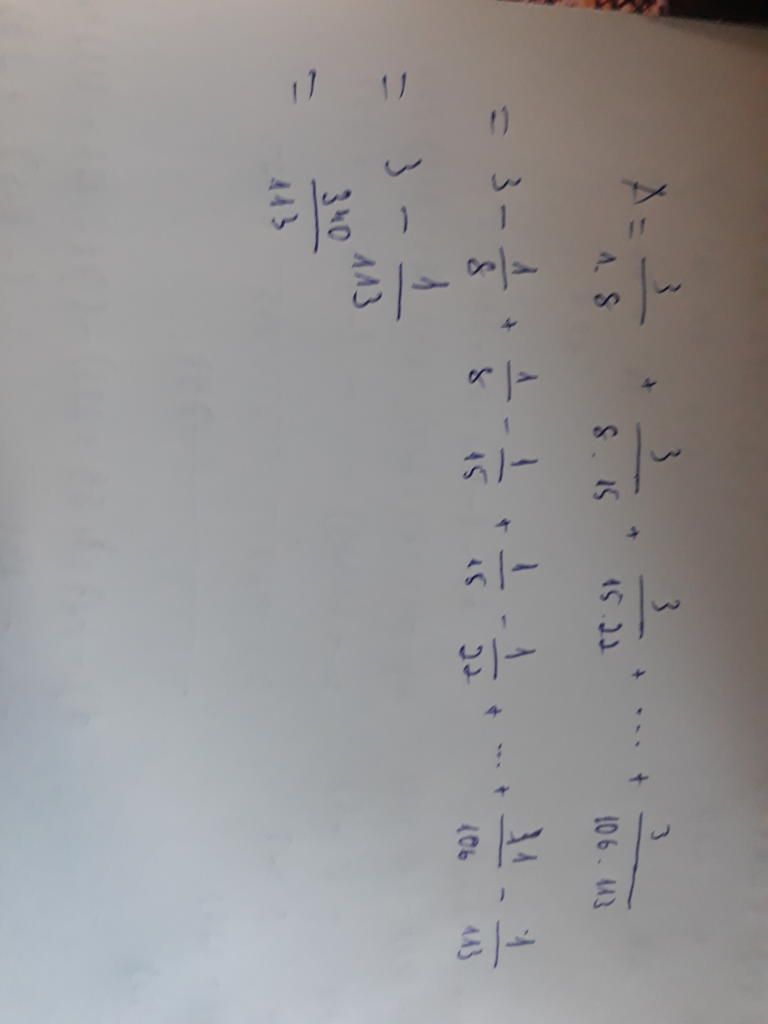 A = 3/1.8 + 3/8.15 + 3/15.22 + ... + 3/106.113
= 3 - 1/8 + 1/8 - 1/15 + 1/15 - 1/22 + ... + 1/106 - 1/113
= 3 - 1/113
= 340/113